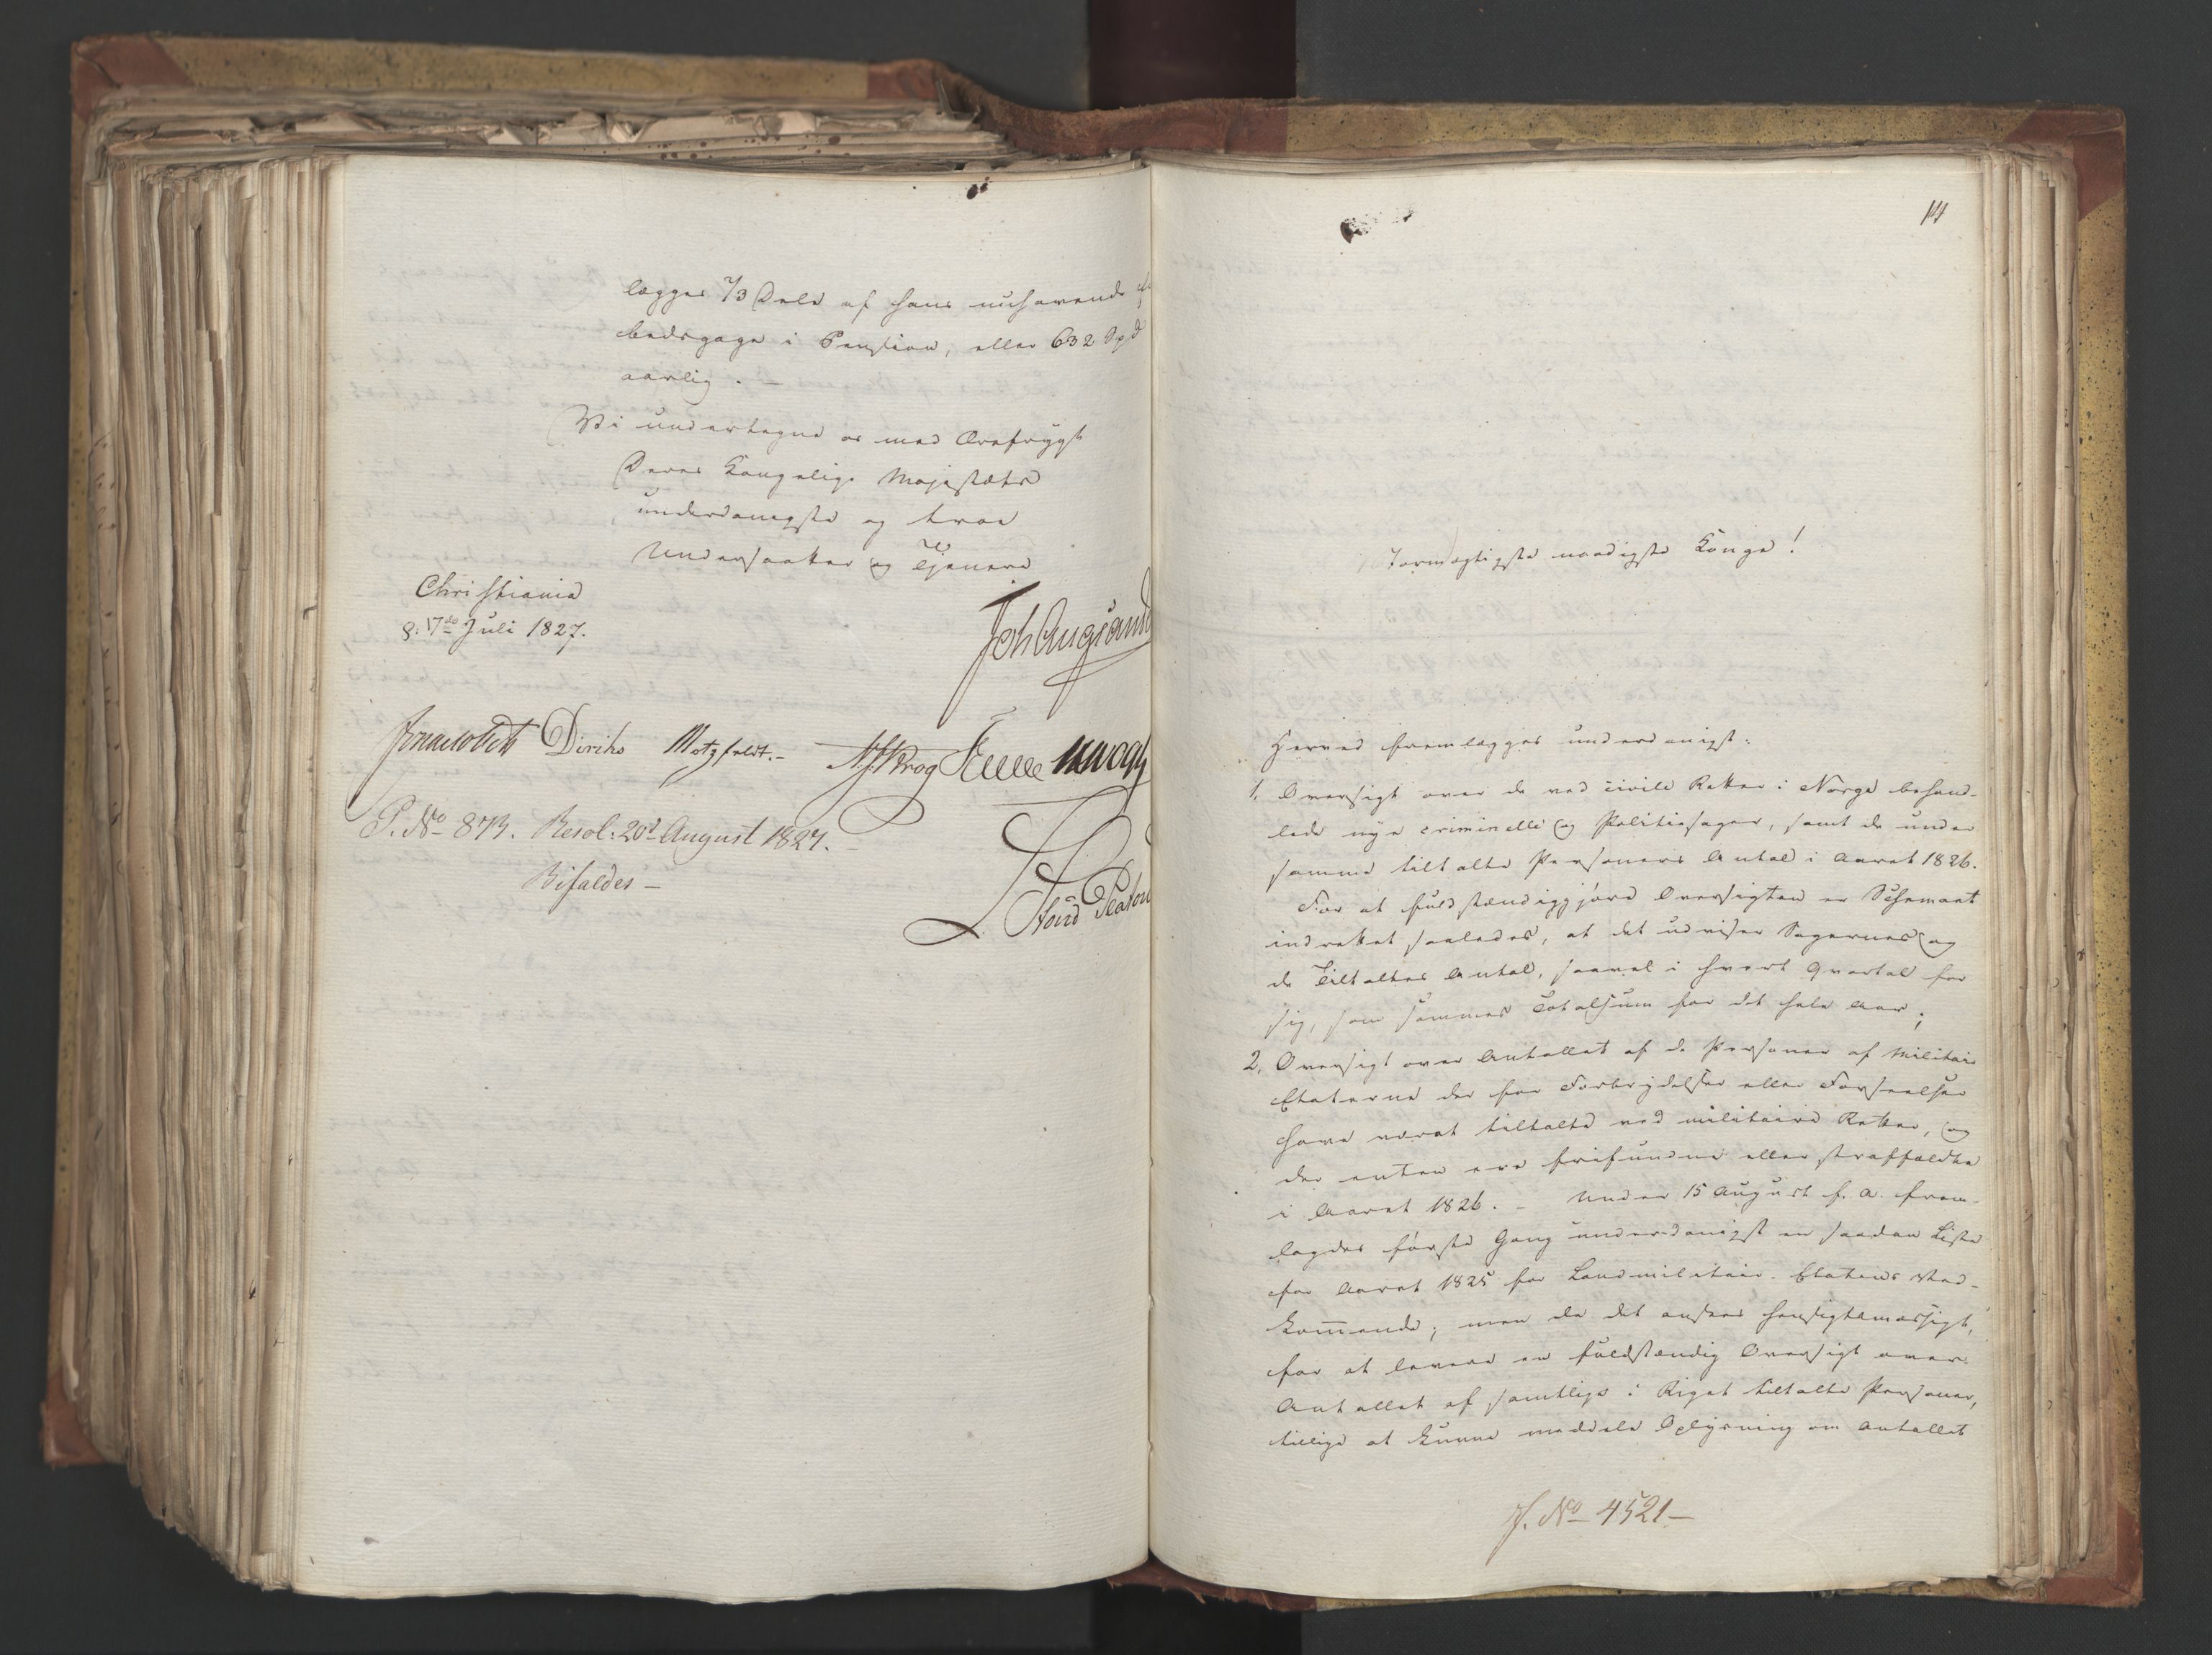 lægges 2/3 Dele af hans nuhavende
bedsgage i Pension, eller 632 Spd
aarlig. –
Vi undertegne os med Ærefrygt
Deres Kongelige Majestæts
underdanigste og troe
Undersaatter og Tjenere
Christiania
d: 17de Juli 1827.
Joh Aug Sand
Diriks Motzfeldt.– Krog
P. No 873. Resol: 20d August 1827.
Bifaldes –
111
Stormægtigste naadigste Konge!
Herved fremlægges underdanigst:
1, Oversigt over de ved civile Retter i Norge behand-
lede nye criminelle og Politiesager, samt de under
samme tiltalte Personers Antal i Aaret 1826.
For at fuldstændiggjøre Oversigten er Schemaet
indrettet saaledes, at det udviser Sagernes og
de Tiltaltes Antal, saavel i hvert Qvartal for
sig, som sammes Totalsum for det hele Aar;
2, Oversigt over Antallet af de Personer af Militair
Etaterne der for Forbrydelser eller Forseelser
have været tiltalte ved militaire Retter, og
der enten ere frifundne eller straffældte
i Aaret 1826. – Under 15 August f. A. frem-
lagdes første Gang underdanigst en saadan Liste
for Aaret 1825 for Landmilitair-Etatens Ved-
kommende; men da det ansees hensigtsmæssigt,
for at levere en fuldstændig Oversigt over
Antallet af samtlige i Riget tiltalte Personer,
tillige at kunne meddele Oplysning om Antallet
J. No 4521–